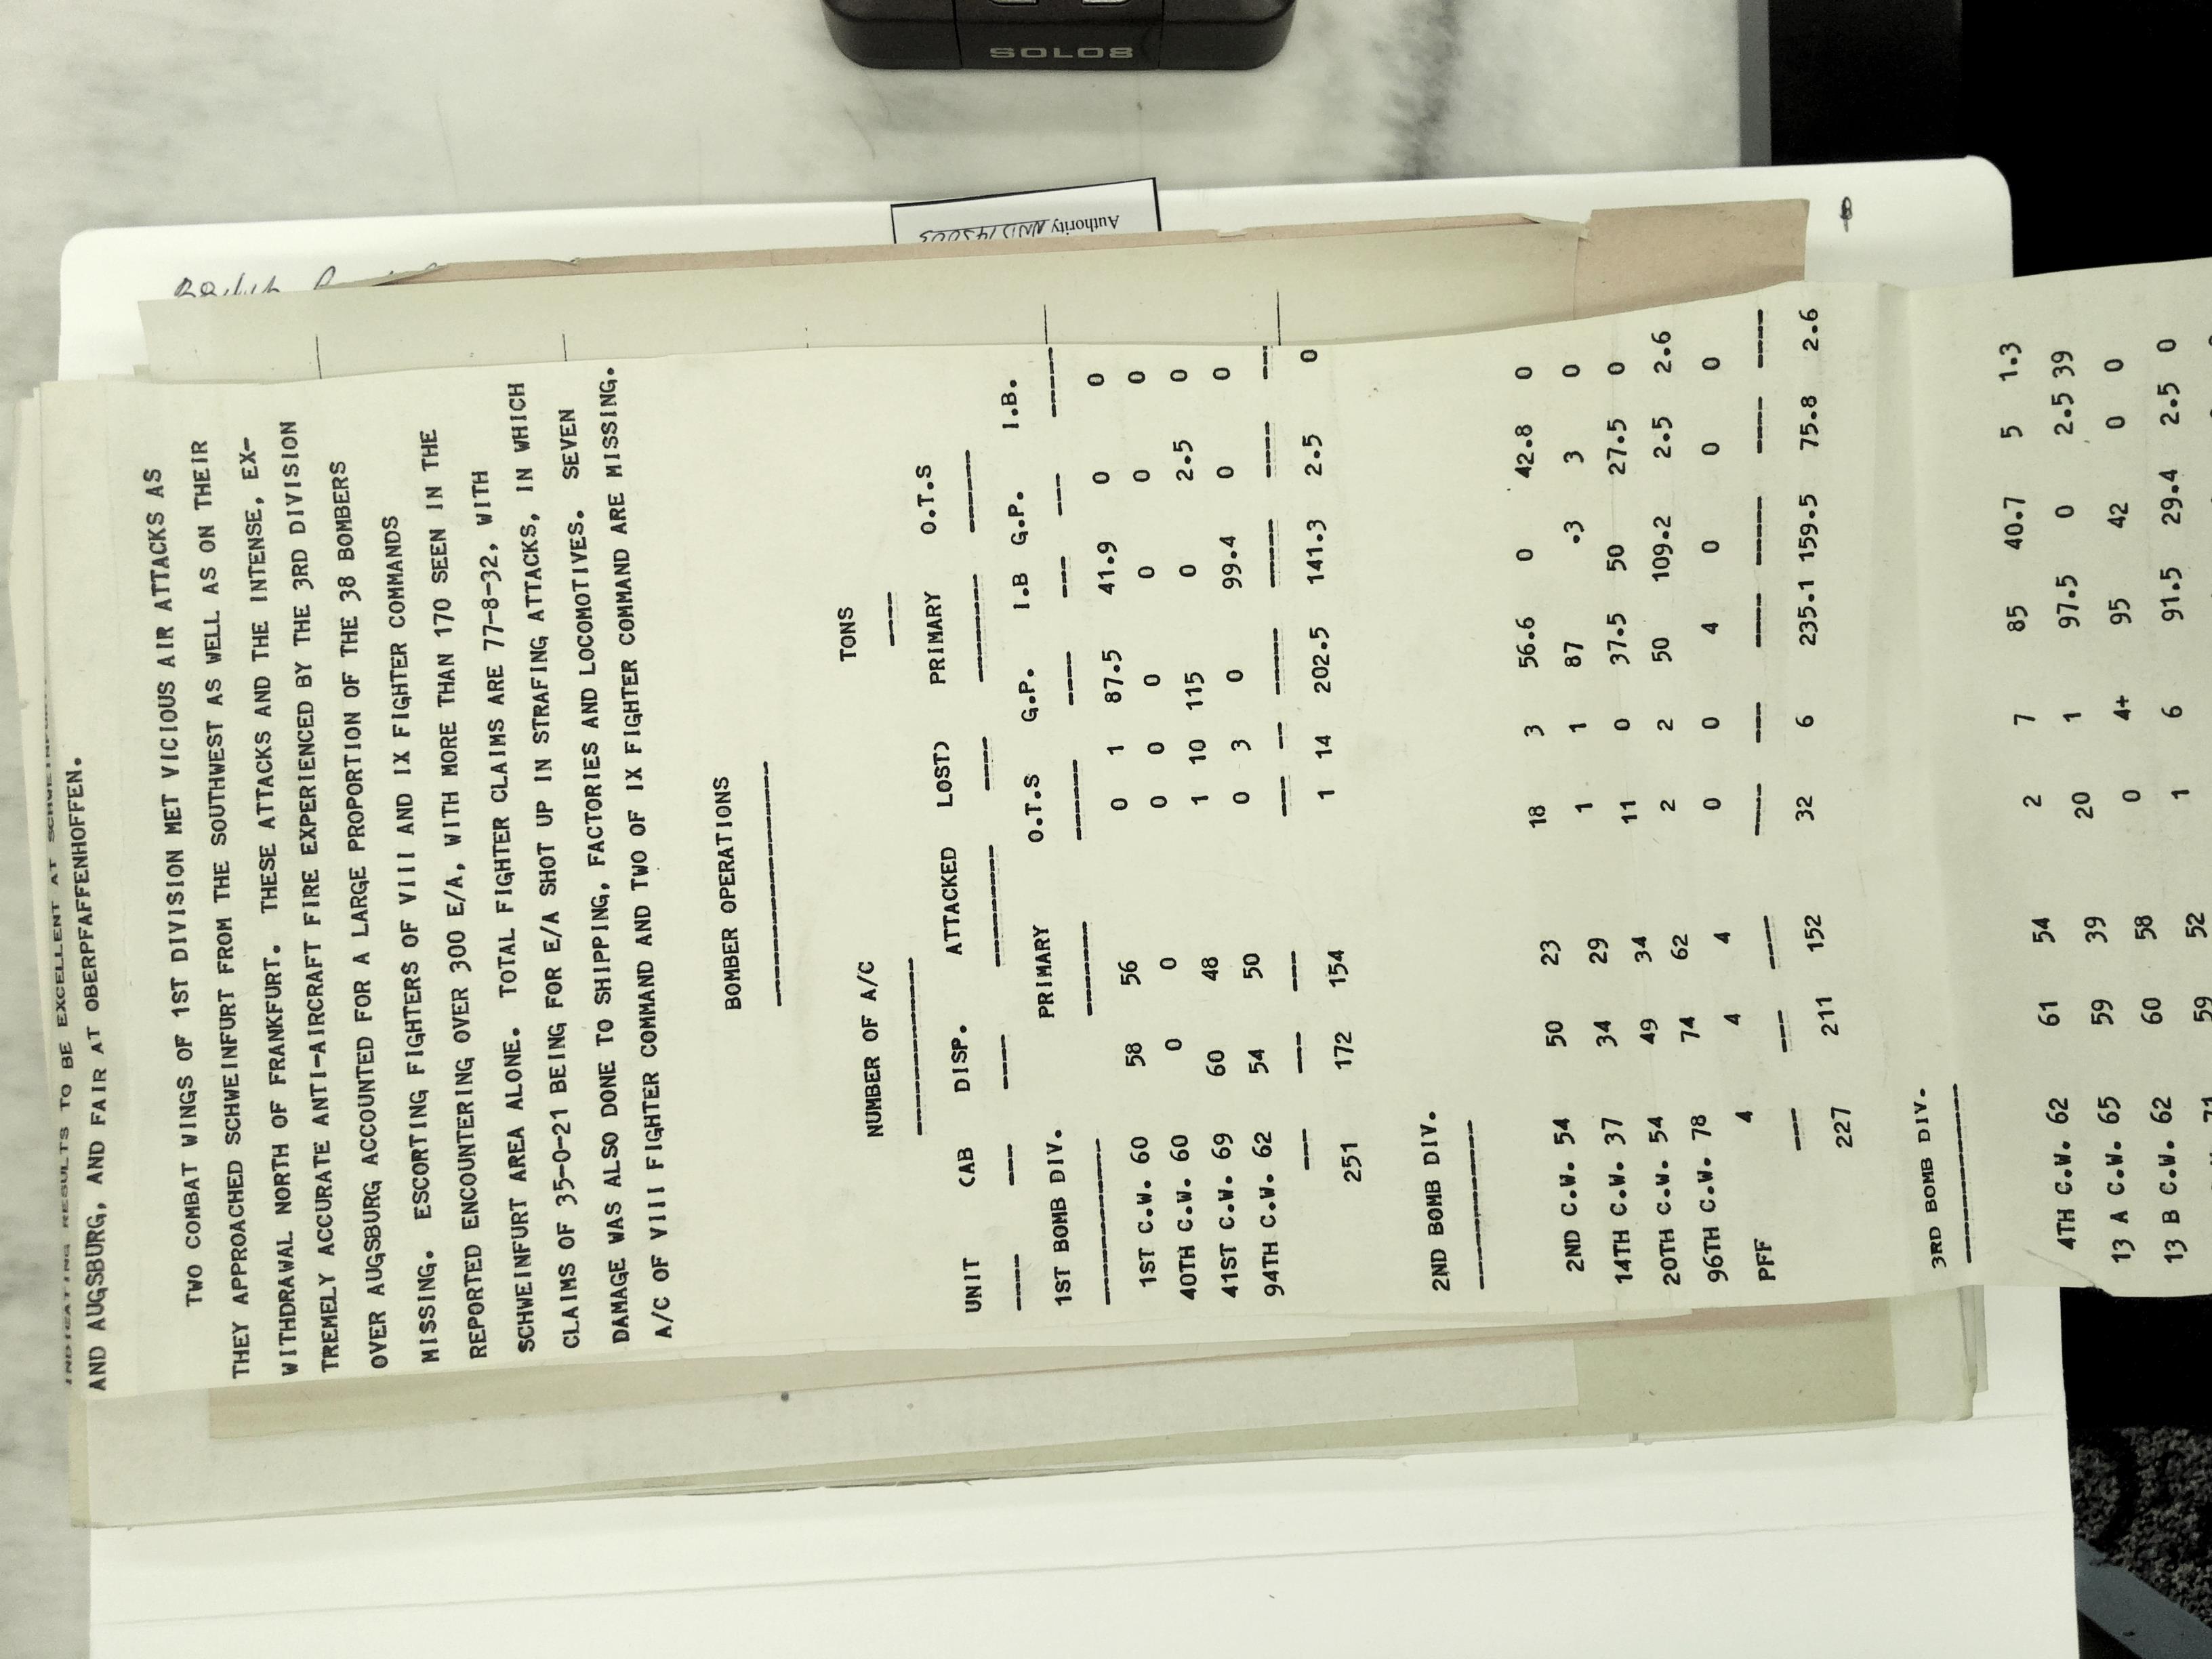 SOLO8
Authority NND 745005
INDICATING RESULTS TO BE EXCELLENT AT
AND AUGSBURG, AND FAIR AT OBERPFAFFENHOFFEN.
TWO COMBAT WINGS OF 1ST DIVISION MET VICIOUS AIR ATTACKS AS
THEY APPROACHED SCHWEINFURT FROM THE SOUTHWEST AS WELL AS ON THEIR
WITHDRAWAL NORTH OF FRANKFURT. THESE ATTACKS AND THE INTENSE, EX-
TREMELY ACCURATE ANTI-AIRCRAFT FIRE EXPERIENCED BY THE 3RD DIVISION
OVER AUGSBURG ACCOUNTED FOR A LARGE PROPORTION OF THE 38 BOMBERS
MISSING. ESCORTING FIGHTERS OF VIII AND IX FIGHTER COMMANDS
REPORTED ENCOUNTERING OVER 300 E/A, WITH MORE THAN 170 SEEN IN THE
SCHWEINFURT AREA ALONE. TOTAL FIGHTER CLAIMS ARE 77-8-32, WITH
CLAIMS OF 35-0-21 BEING FOR E/A SHOT UP IN STRAFING ATTACKS, IN WHICH
DAMAGE WAS ALSO DONE TO SHIPPING, FACTORIES AND LOCOMOTIVES. SEVEN
A/C OF VIII FIGHTER COMMAND AND TWO OF IX FIGHTER COMMAND ARE MISSING.
BOMBER OPERATIONS
NUMBER OF A/C TONS
UNIT (AB DISP. ATTACKED LOST) PRIMARY O.T.S
PRIMARY O.T.S G.P. I.B G.P. I.B.
1ST BOMB DIV.
1ST C.W. 60 58 56 0 1 87.5 41.9 0 0
40TH C.W. 60 0 0 0 0 0 0 0 0
41ST C.W. 69 60 48 1 10 115 0 2.5 0
94TH C.W. 62 54 50 0 3 0 99.4 0 0
251 172 154 1 14 202.5 141.3 2.5 0
2ND BOMB DIV.
2ND C.W. 54 50 23 18 3 56.6 0 42.8 0
14TH C.W. 37 34 29 1 1 87 .3 3 0
20TH C.W. 54 49 34 11 0 37.5 50 27.5 0
96TH C.W. 78 74 62 2 2 50 109.2 2.5 2.6
PFF 4 4 4 0 0 4 0 0 0
227 211 152 32 6 235.1 159.5 75.8 2.6
3RD BOMB DIV.
4TH C.W. 62 61 54 2 7 85 40.7 5 1.3
13 A C.W. 65 59 39 20 1 97.5 0 2.5 39
13 B C.W. 62 60 58 0 4+ 95 42 0 0
71 59 52 1 6 91.5 29.4 2.5 0